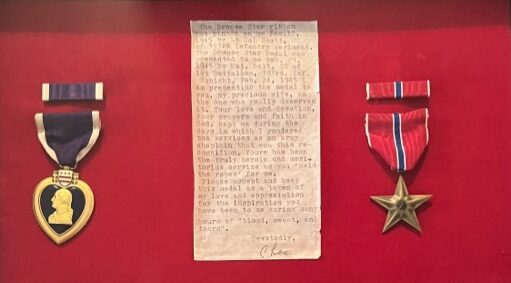 The Bronze Star ribbon
was pinned on me Jan.12,
1945 by Col. Scott, CO
of 393rd Infantry Regiment.
The Bronze Star Medal was
presented to me Feb.
1945 by Maj.
1st Battalion, 393rd. Inf.
Tonight, Feb. 24, 1945 I
am presenting the medal to
you, my precious wife,
the one who really deserves
it. Your love and devotion,
your prayers and faith in
God, kept me during the
days in which I rendered
the services as an army
chaplain that won this re-
cognition. Yours has been
the truly heroic and meri-
torius service as you "held
the ropes" for me.
Please accept and keep
this medal as a token of
my love and appreciation
for the inspiration you
have been to me during many
hours of "blood, sweat, and
tears".
Devotedly,